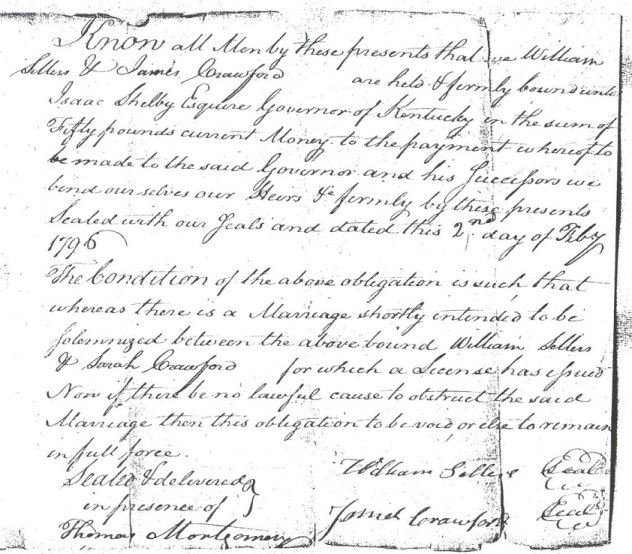 Know all Men by these presents that we William
Sellers & James Crawford are held & firmly bound unto
Isaac Shelby Esquire Governor of Kentucky in the sum of
Fifty pounds current Money to the payment whereof to
be made to the said Governor and his Successors we
bind ourselves our Heirs &c firmly by these presents
Sealed with our Seals and dated this 2nd day of Feby
1796
The Condition of the above obligation is such that
whereas there is a Marriage shortly intended to be
Solemnized between the above bound William Sellers
& Sarah Crawford for which a License has issued
Now if there be no lawful cause to obstruct the said
Marriage then this obligation to be void or else to remain
in full force.
Sealed & delivered
in presence of
Thomas Montgomery
William Sellers Seal
James Crawford Seal